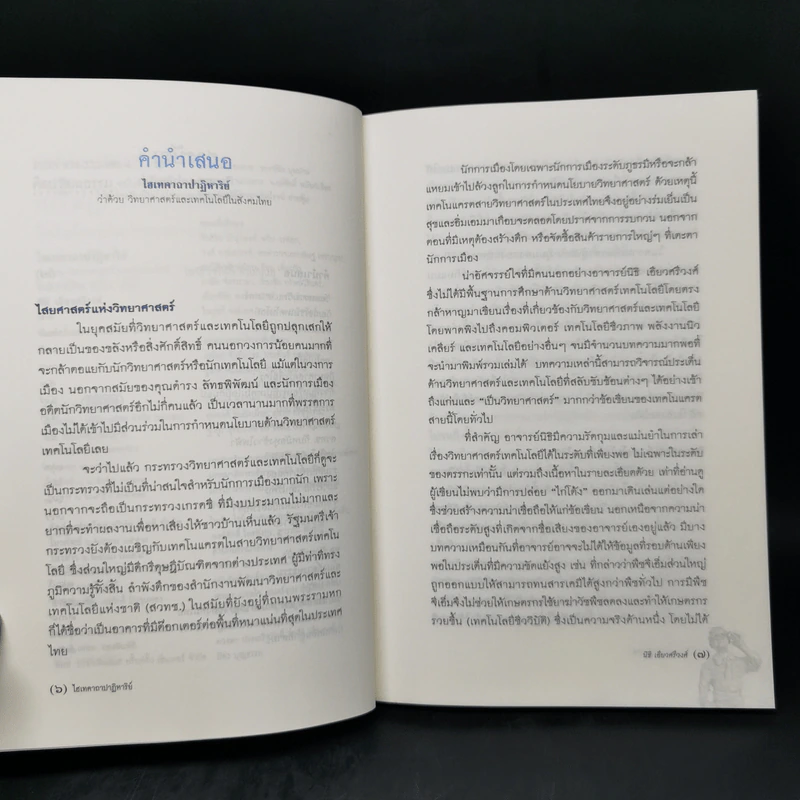 คำนำเสนอ
ไฮเทคาถาปาฏิหาริย์
ว่าด้วย วิทยาศาสตร์และเทคโนโลยีในสังคมไทย
ไสยศาสตร์แห่งวิทยาศาสตร์
ในยุคสมัยที่วิทยาศาสตร์และเทคโนโลยีถูกปลุกเสกให้
กลายเป็นของขลังหรือสิ่งศักดิ์สิทธิ์ คนนอกวงการน้อยคนมากที่
จะกล้าตอแยกับนักวิทยาศาสตร์หรือนักเทคโนโลยี แม้แต่ในวงการ
เมือง นอกจากสมัยของคุณดำรง ลัทธพิพัฒน์ และนักการเมือง
อดีตนักวิทยาศาสตร์อีกไม่กี่คนแล้ว เป็นเวลานานมากที่พรรคการ
เมืองไม่ได้เข้าไปมีส่วนร่วมในการกำหนดนโยบายด้านวิทยาศาสตร์
เทคโนโลยีเลย
จะว่าไปแล้ว กระทรวงวิทยาศาสตร์และเทคโนโลยีก็ดูจะ
เป็นกระทรวงที่ไม่เป็นที่น่าสนใจสำหรับนักการเมืองมากนัก เพราะ
นอกจากจะถือเป็นกระทรวงเกรดซี ที่มีงบประมาณไม่มากและ
ยากที่จะทำผลงานเพื่อหาเสียงให้ชาวบ้านเห็นแล้ว รัฐมนตรีเจ้า
กระทรวงยังต้องเผชิญกับเทคโนแครตในสายวิทยาศาสตร์เทคโน
โลยี ซึ่งส่วนใหญ่มีดีกรีดุษฎีบัณฑิตจากต่างประเทศ ผู้มีท่าทีทรง
ภูมิความรู้ทั้งสิ้น ลำพังตึกของสำนักงานพัฒนาวิทยาศาสตร์และ
เทคโนโลยีแห่งชาติ (สวทช.) ในสมัยที่ยังอยู่ที่ถนนพระรามหก
ก็ได้ชื่อว่าเป็นอาคารที่มีด๊อกเตอร์ต่อพื้นที่หนาแน่นที่สุดในประเทศ
ไทย
(๖) ไฮเทคาถาปาฏิหาริย์
นักการเมืองโดยเฉพาะนักการเมืองระดับภูธรมีหรือจะกล้า
แหยมเข้าไปล้วงลูกในการกำหนดนโยบายวิทยาศาสตร์ ด้วยเหตุนี้
เทคโนแครตสายวิทยาศาสตร์ในประเทศไทยจึงอยู่อย่างร่มเย็นเป็น
สุขและอิ่มเอมมาเกือบจะตลอดโดยปราศจากการรบกวน นอกจาก
ตอนที่มีเหตุต้องสร้างตึก หรือจัดซื้อสินค้ารายการใหญ่ๆ ที่เตะตา
นักการเมือง
น่าอัศจรรย์ใจที่มีคนนอกอย่างอาจารย์นิธิ เอียวศรีวงศ์
ซึ่งไม่ได้มีพื้นฐานการศึกษาด้านวิทยาศาสตร์ เทคโนโลยีโดยตรง
กล้าหาญมาเขียนเรื่องที่เกี่ยวข้องกับวิทยาศาสตร์และเทคโนโลยี
โดยพาดพิงไปถึงคอมพิวเตอร์ เทคโนโลยีชีวภาพ พลังงานนิว
เคลียร์ และเทคโนโลยีอย่างอื่นๆ จนมีจำนวนบทความมากพอที่
จะนำมาพิมพ์รวมเล่มได้ บทความเหล่านี้สามารถวิจารณ์ประเด็น
ด้านวิทยาศาสตร์และเทคโนโลยีที่สลับซับซ้อนต่างๆ ได้อย่างเข้า
ถึงแก่นและ “เป็นวิทยาศาสตร์” มากกว่าข้อเขียนของเทคโนแครต
สายนี้โดยทั่วไป
ที่สำคัญ อาจารย์นิธิมีความรัดกุมและแม่นยำในการเล่า
เรื่องวิทยาศาสตร์เทคโนโลยีได้ในระดับที่เพียงพอ ไม่เฉพาะในระดับ
ของตรรกะเท่านั้น แต่รวมถึงเนื้อหาในรายละเอียดด้วย เท่าที่อ่านดู
ผู้เขียนไม่พบว่ามีการปล่อย “ไก่โต้ง” ออกมาเดินเล่นแต่อย่างใด
ซึ่งช่วยสร้างความน่าเชื่อถือให้แก่ข้อเขียน นอกเหนือจากความน่า
เชื่อถือระดับสูงที่เกิดจากชื่อเสียงของอาจารย์เองอยู่แล้ว มีบาง
บทความเหมือนกันที่อาจารย์อาจจะไม่ได้ให้ข้อมูลที่รอบด้านเพียง
พอในประเด็นที่มีความขัดแย้งสูง เช่น ที่กล่าวว่าพืชจีเอ็มส่วนใหญ่
ถูกออกแบบให้สามารถทนสารเคมีได้สูงกว่าพืชทั่วไป การมีพืช
จีเอ็มจึงไม่ช่วยให้เกษตรกรใช้ยาฆ่าวัชพืชลดลงและทำให้เกษตรกร
รวยขึ้น (เทคโนโลยีชีววิบัติ) ซึ่งเป็นความจริงด้านหนึ่ง โดยไม่ได้
นิธิ เอียวศรีวงศ์ (๗)